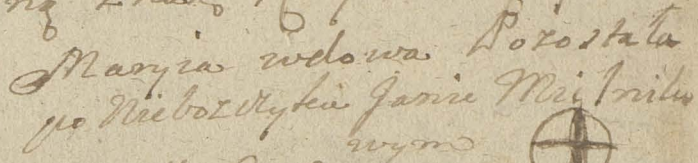 Maryia wdowa Pozostała
po Nieboszczyku Janie
wym